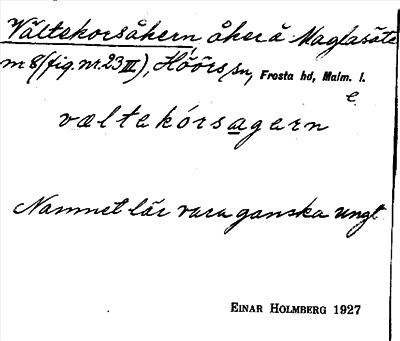 Vältekorsåkern, åker å Maglasäte
nr 8 (fig. nr. 23 III), Höörs sn, Frosta hd, Malm. l.
e
væltekórsagern
Namnet lär vara ganska ungt
EINAR HOLMBERG 1927